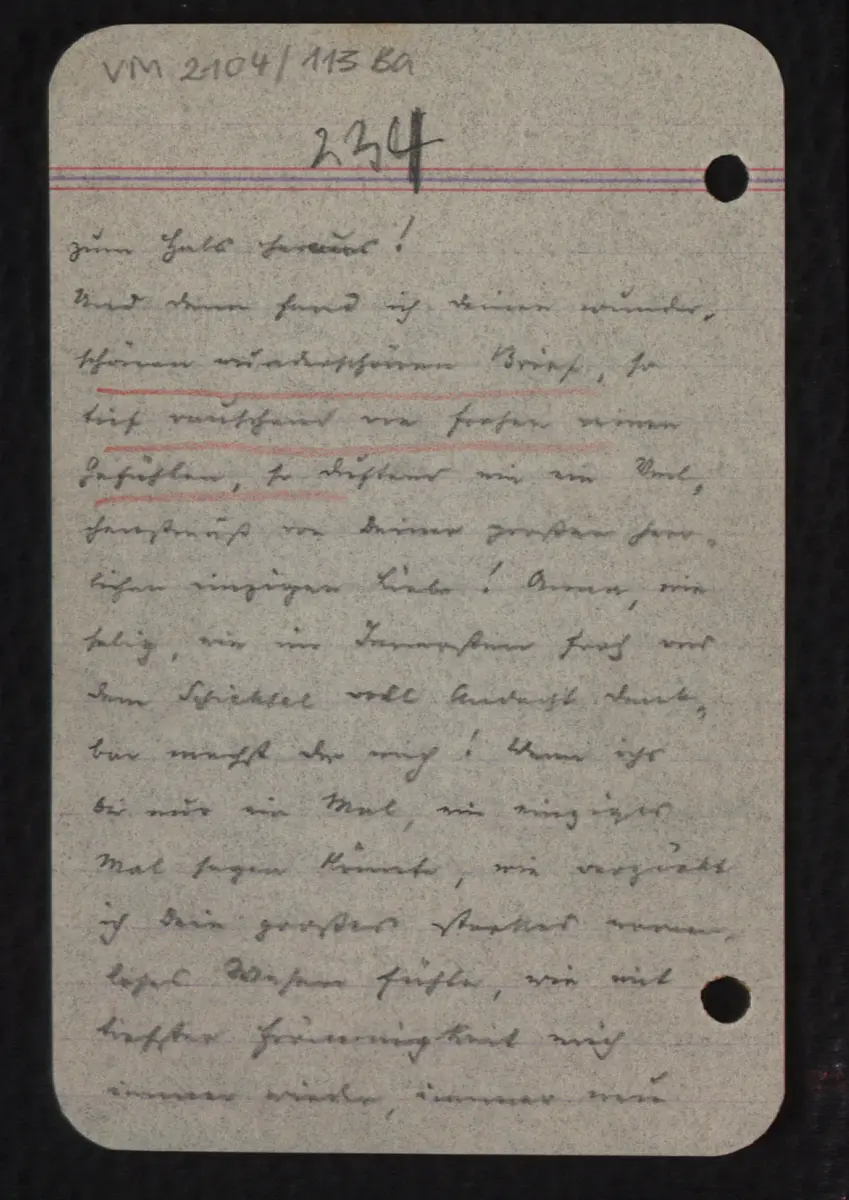 VM 2104/113 Ba
234
zum Hals heraus!
Und dann fand ich deinen wunder,
schönen wunderschönen Brief, so
tief rauschend von frohen reinen
Gefühlen, so duftend wie ein Veil,
chenstrauß von Deiner großen herr,
lichen einzigen Liebe! Anna, wie
selig, wie im Innersten froh und
dem Schicksal voll Andacht dank,
bar machst du mich! Wenn ichs
dir nur ein Mal, ein einziges
Mal sagen könnte, wie verzückt
ich Dein großes starkes
loses Wesen fühle, wie mit
tiefster Frömmigkeit mich
immer wieder, immer neu